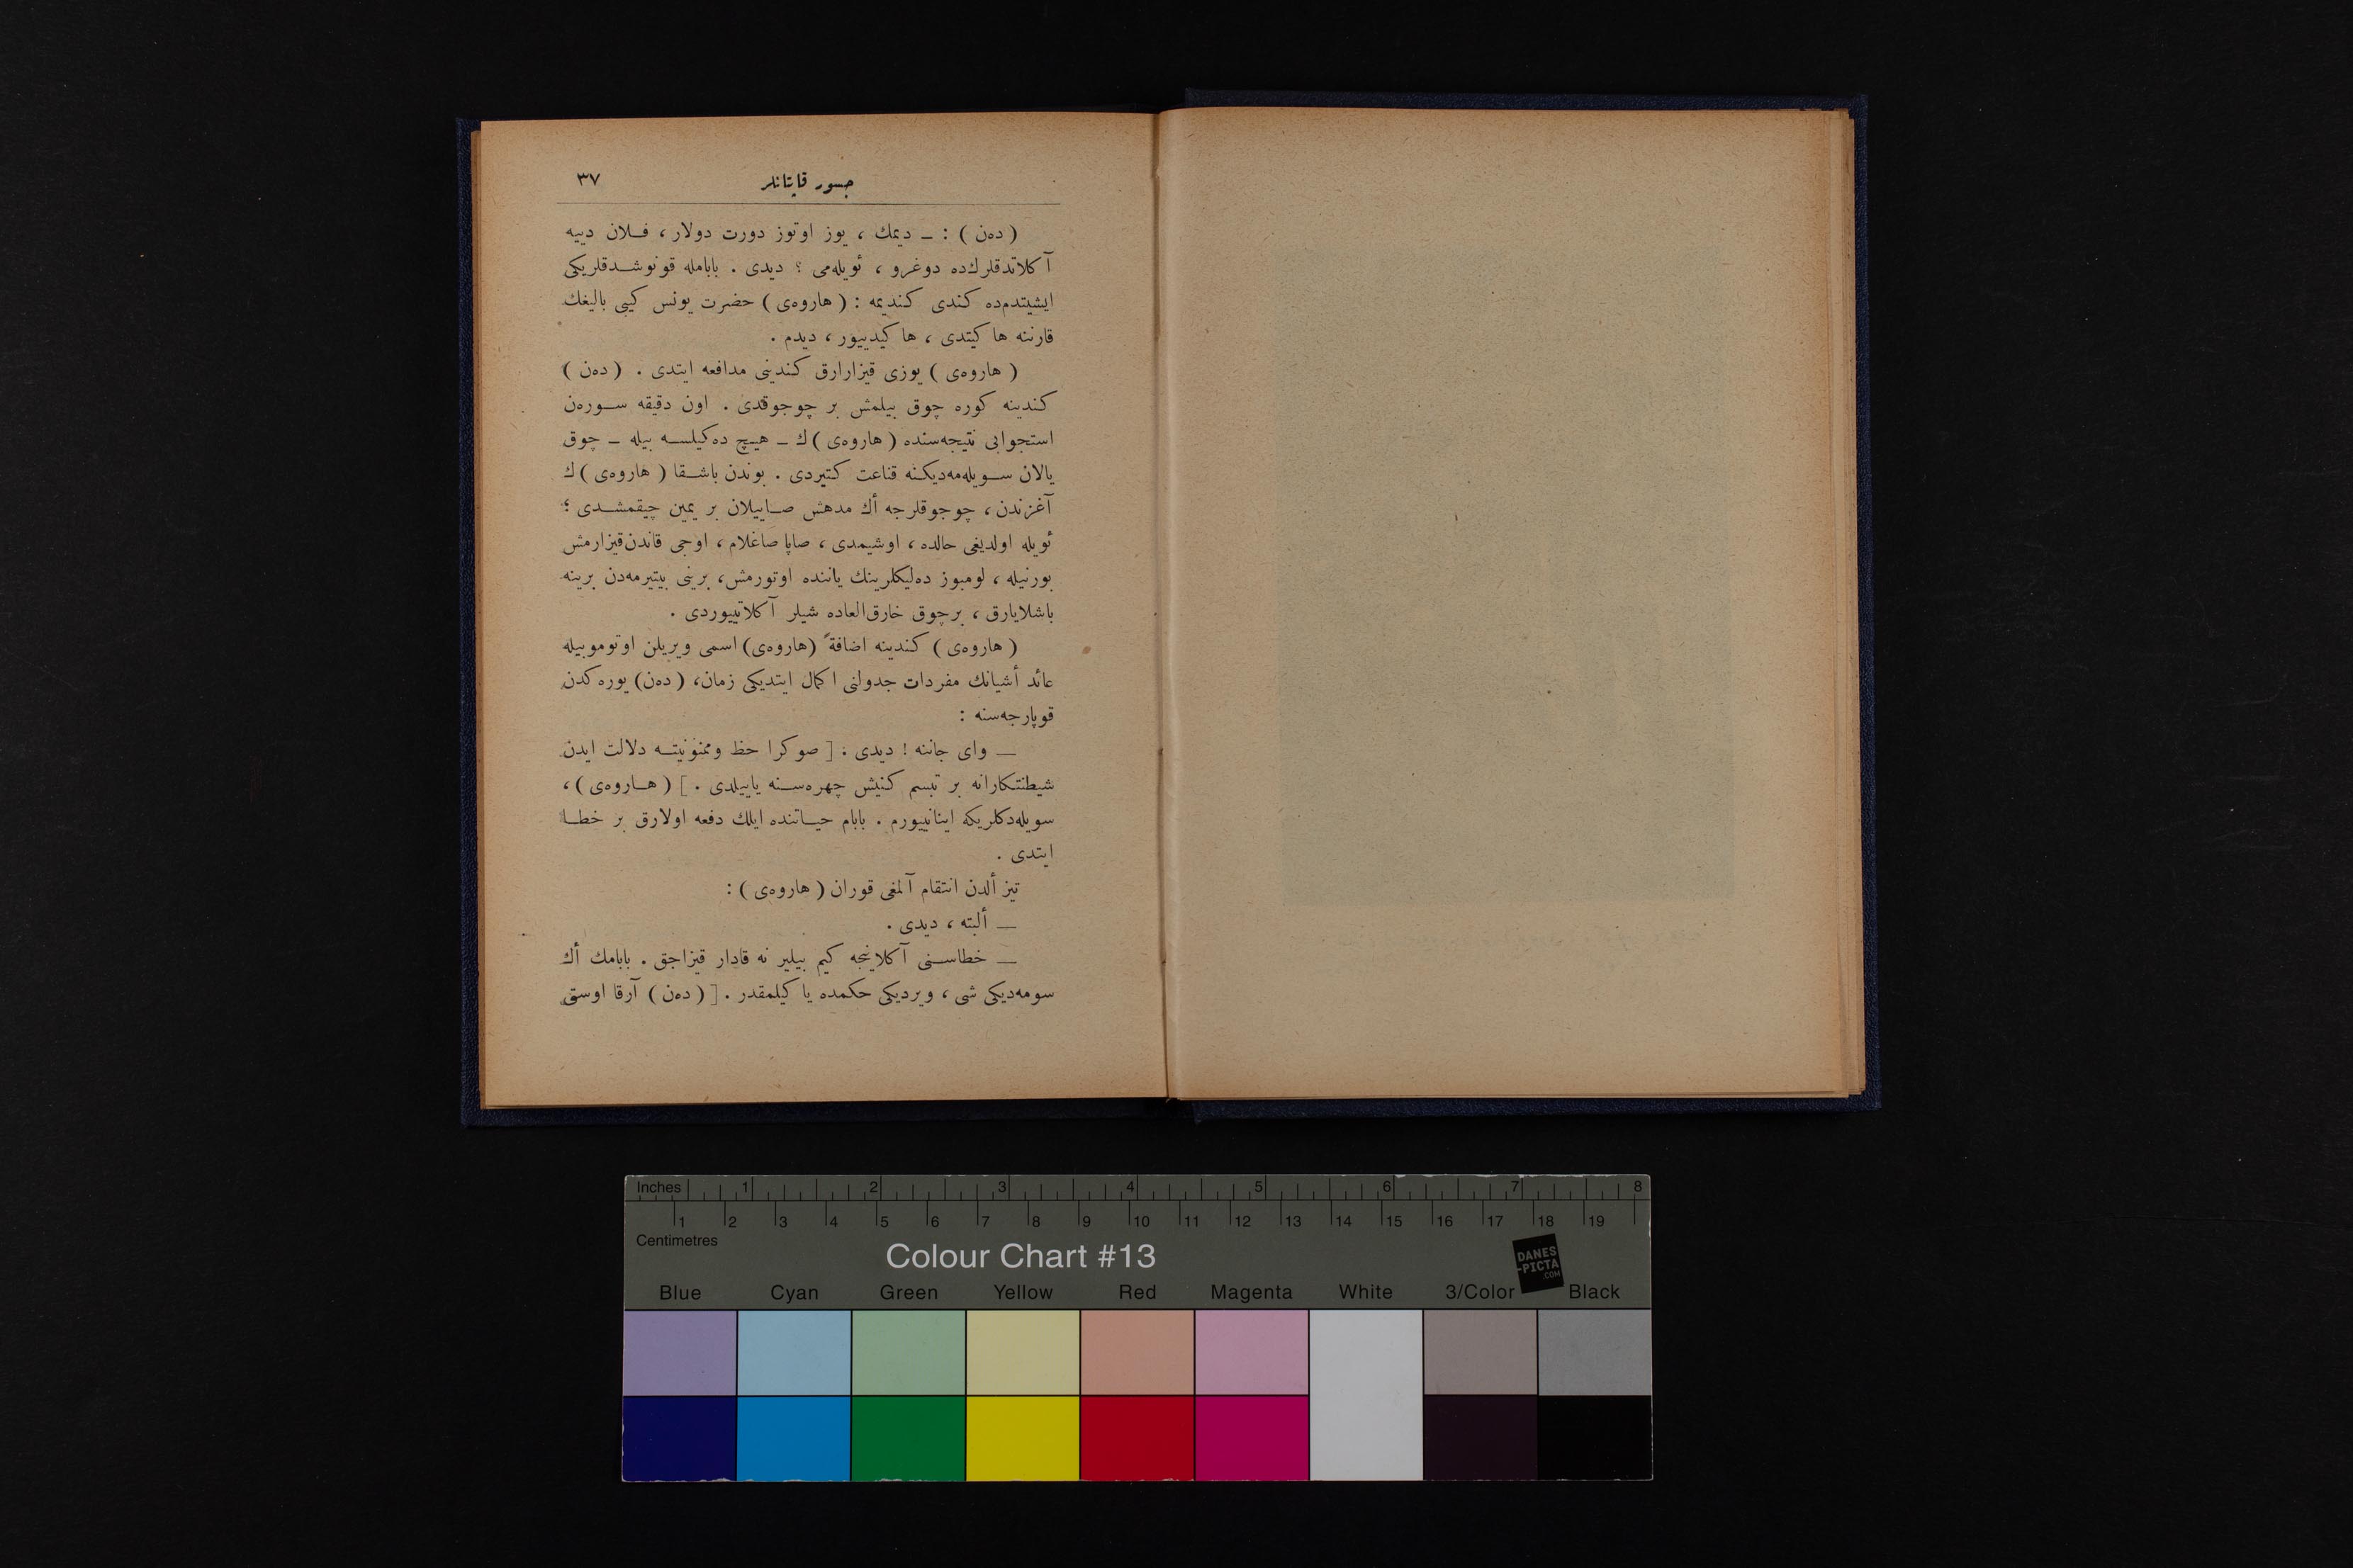 جسور قاپتانلر ٣٧
( ده‌ن ) : ــ ديمك ، يوز اوتوز دورت دولار ، فلان دييه
آكلاتدقلرك‌ده دوغرو ، ئويله‌مى ؟ ديدى . بابامله قونوشدقلريكى
ايشيتدم‌ده كندى كنديمه : ( هاروه‌ى ) حضرت يونس كيبى باليغك
قارننه ها كيتدى ، ها كيدييور ، ديدم .
( هاروه‌ى ) يوزى قيزارارق كندينى مدافعه ايتدى . ( ده‌ن )
كندينه كوره چوق بيلمش بر چوجوقدى . اون دقيقه سوره‌ن
استجوابى نتيجه‌سنده ( هاروه‌ى ) ك ــ هيچ ده‌كيلسه بيله ــ چوق
يالان سويله‌مه‌ديكنه قناعت كتيردى . بوندن باشقا ( هاروه‌ى ) ك
آغزندن ، چوجوقلرجه أك مدهش صاييلان بر يمين چيقمشدى ؛
ئويله اولديغى حالده ، اوشيمدى ، صاپا صاغلام ، اوجى قاندن قيزارمش
بورنيله ، لومبوز ده‌ليكلرينك ياننده اوتورمش، برينى بيتيرمه‌دن برينه
باشلايارق ، برچوق خارق‌العاده شيلر آكلاتييوردى .
( هاروه‌ى ) كندينه اضافةً (هاروه‌ى) اسمى ويريلن اوتوموبيله
عائد أشيانك مفردات جدولنى اكمال ايتديكى زمان، ( ده‌ن) يوره‌كدن
قوپارجه‌سنه :
ــ واى جاننه ! ديدى . [ صوكرا حظ وممنونيته دلالت ايدن
شيطنتكارانه بر تبسم كنيش چهره‌سنه ياييلدى . ] ( هاروه‌ى ) ،
سويله‌دكلريكه اينانييورم . بابام حياتنده ايلك دفعه اولارق بر خطا
ايتدى .
تيز ألدن انتقام آلمغى قوران ( هاروه‌ى ) :
ــ ألبته ، ديدى .
ــ خطاسنى آكلاينجه كيم بيلير نه قادار قيزاجق . بابامك أك
سومه‌ديكى شى ، ويرديكى حكمده ياكيلمقدر . [ ( ده‌ن ) آرقا اوستى
Inches 1 2 3 4 5 6 7 8
1 2 3 4 5 6 7 8 9 10 11 12 13 14 15 16 17 18 19
Centimetres
Colour Chart #13
DANES
-PICTA
.COM
Blue Cyan Green Yellow Red Magenta White 3/Color Black